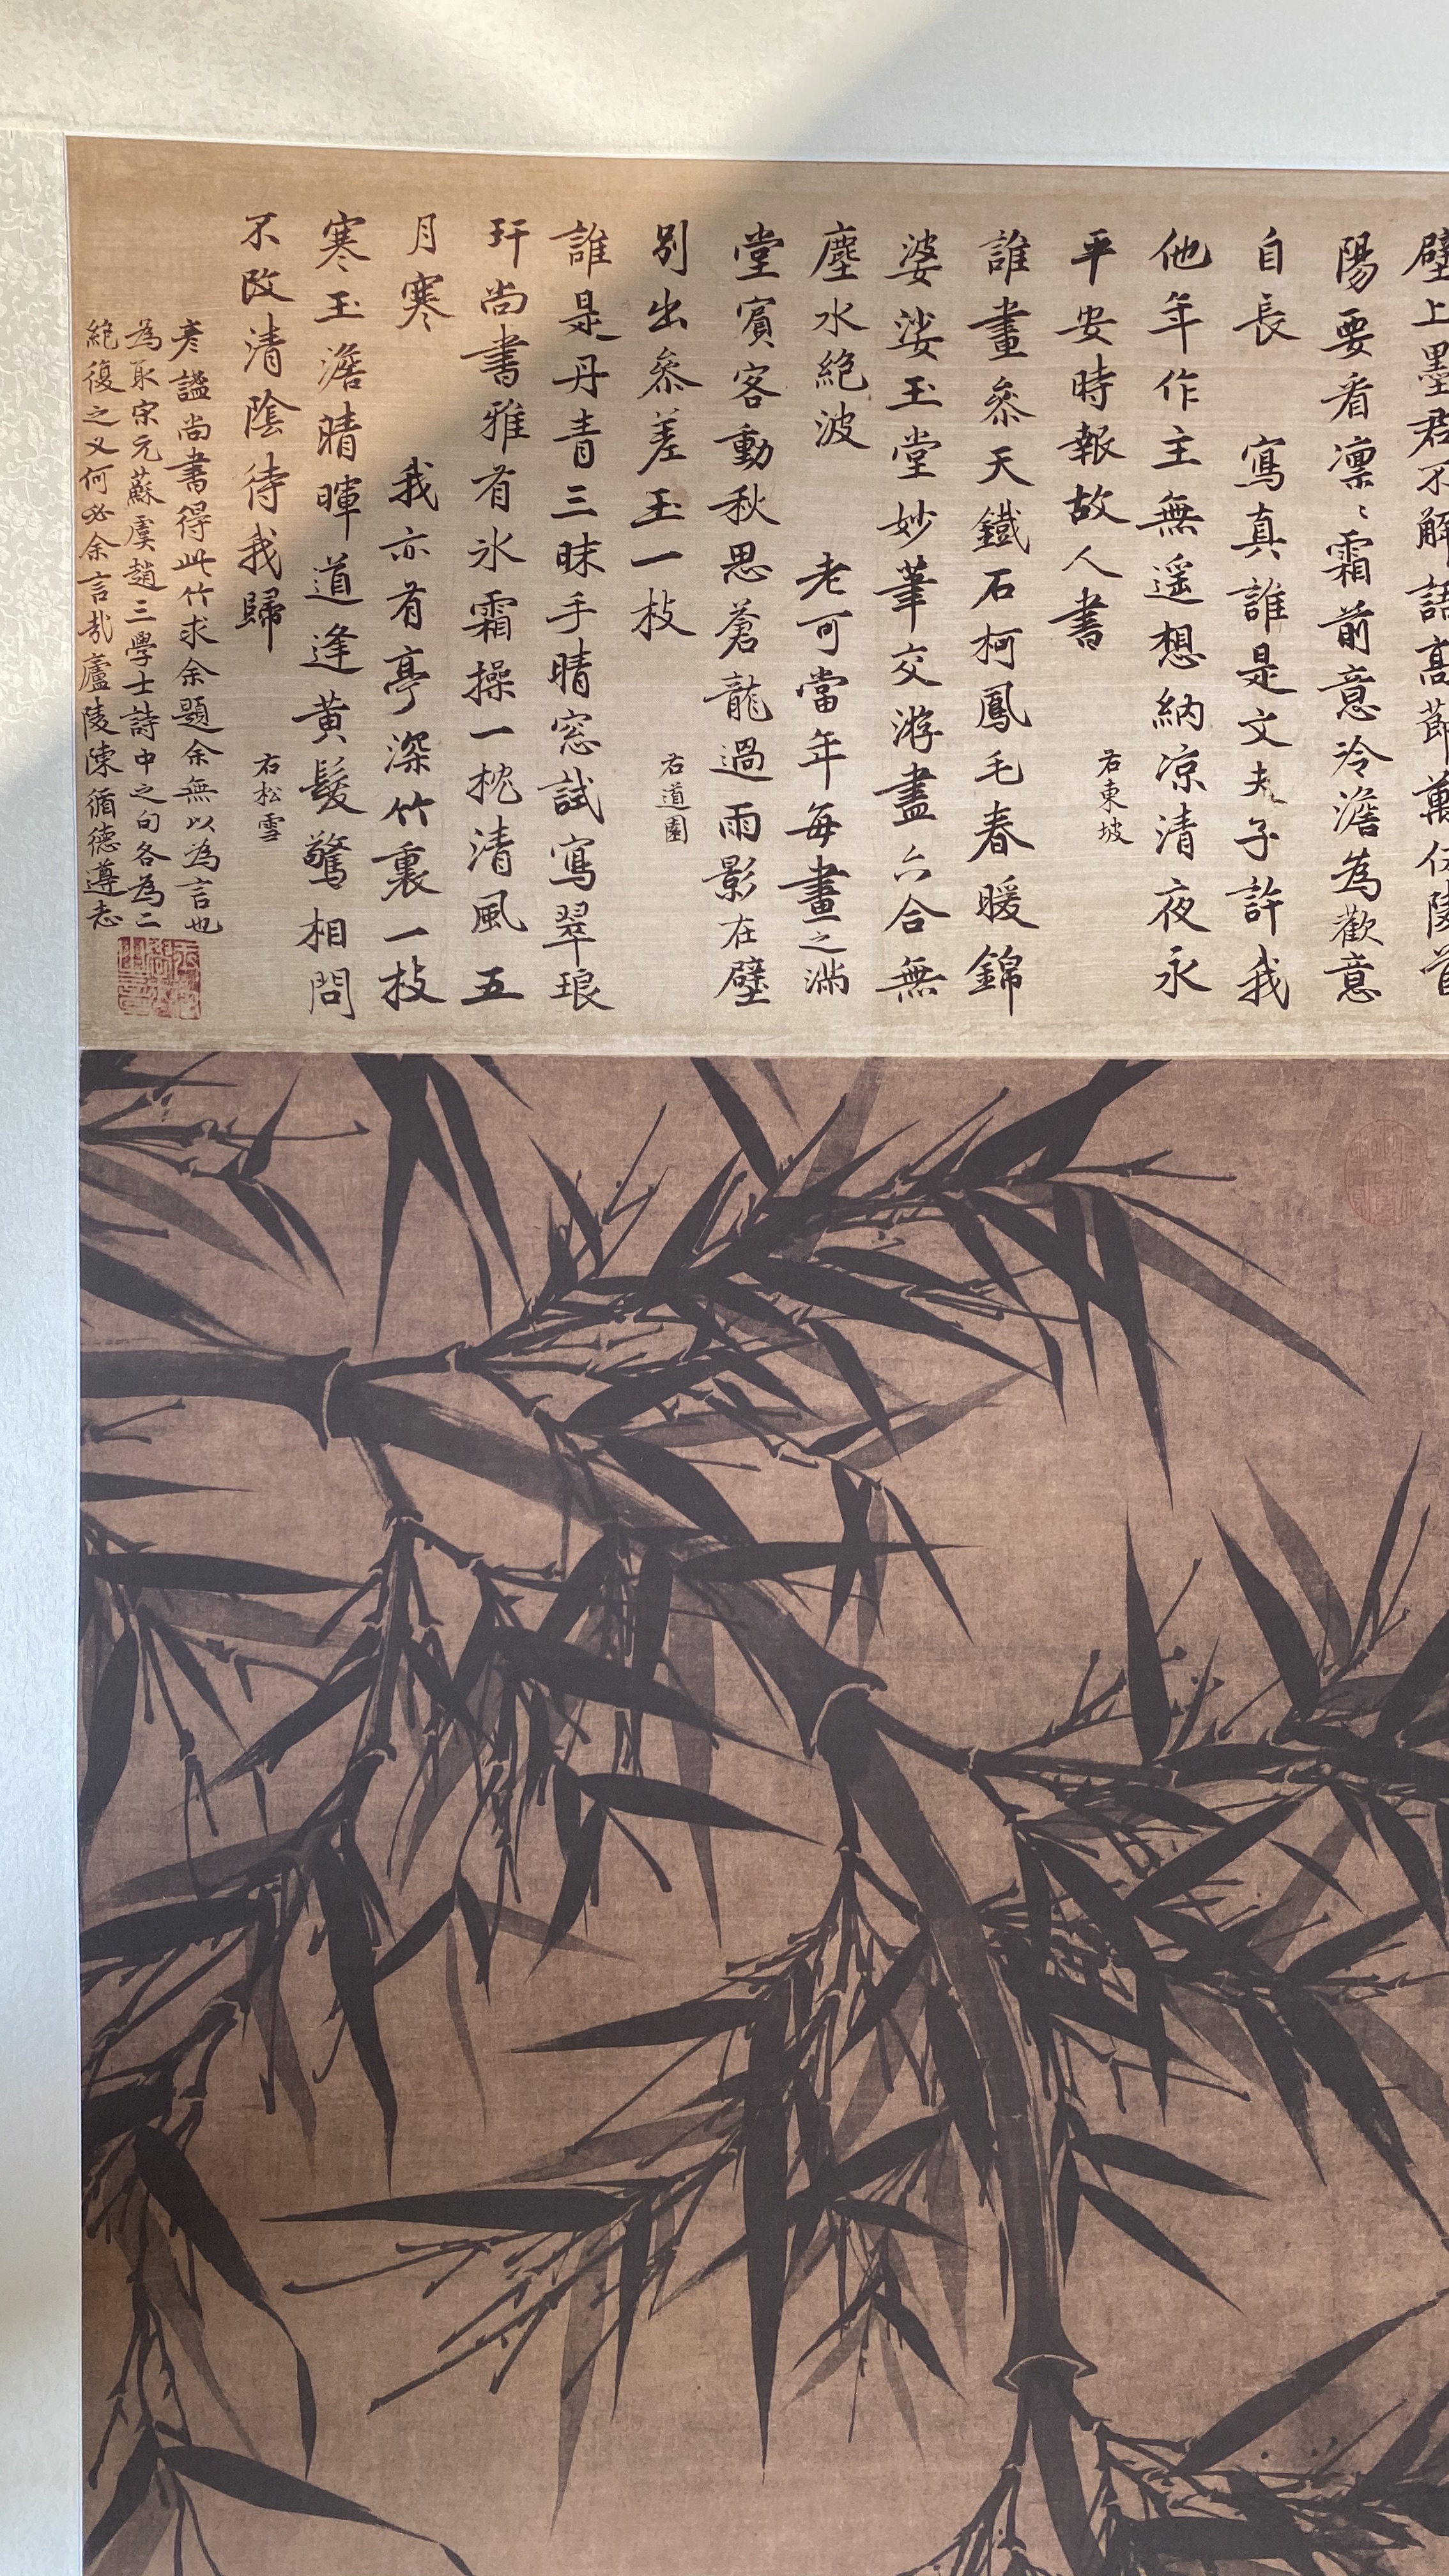 壁上墨君不解語高節萬仞陵首
陽要看凜〻霜前意冷澹為歡意
自長　寫真誰是文夫子許我
他年作主無遥想納凉清夜永
平安時報故人書
右東坡
誰畫叅天鐵石柯鳳毛春暖錦
婆娑玉堂妙筆交游盡六合無
塵水絶波　老可當年每畫之滿
堂賓客動秋思蒼龍過雨影在壁
别出叅差玉一枝
右道園
誰是丹青三昧手晴窓試寫翠琅
玕尚書雅有氷霜操一枕清風五
月寒　我亦有亭深竹裏一枝
寒玉澹晴暉道逢黄髮驚相問
不改清陰待我歸
右松雪
彦謐尚書得此竹求余題余無以為言也
為取宋元蘇虞趙三學士詩中之句各為二
絶復之又何必余言哉廬陵陳循德遵志